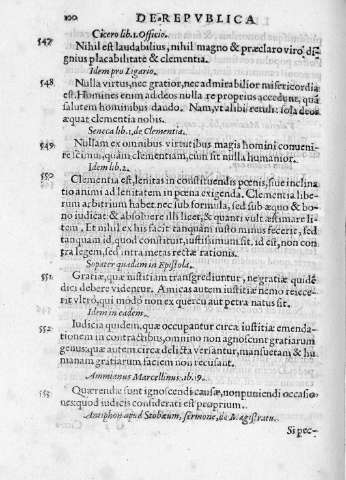 100 DE REPVBLICA
Cicero lib. 1. Officio.
547. Nihil est laudabilius, nihil magno & præclaro viro dignius placabilitate & clementia.
Idem pro Ligario.
548. Nulla virtus, nec gratior, nec admirabilior misericordia
est. Homines enim ad deos nulla re propius accedunt, quã
salutem hominibus dando. Nam, vt alibi retuli: sola deos
æquat clementia nobis.
Seneca lib. 1. de Clementia.
549. Nullam ex omnibus virtutibus magis homini conueni-
re scimus, quàm clementiam, cùm sit nulla humanior.
Idem lib. 2.
550. Clementia est, lenitas in constituendis pœnis, siue inclina
tio animi ad lenitatem in pœna exigenda. Clementia libe
rum arbitrium habet nec sub formula, sed sub æquo & bo
no iudicat & absoluere illi licet, & quanti vult æstimare li
tem, Et nihil ex his facit tanquàm iusto minus fecerit, sed
tanquam id, quod constituit, iustissimum sit. id est, non con
tra legem, sed intra metas rectæ rationis.
Sopater quadam in Epistola.
551. Gratiæ, quæ iustitiam transgrediuntur, ne gratiæ quidẽ
dici debere videntur. Amicas autem iustitiæ nemo reiece-
rit vltrò, qui modò non ex quercu aut petra natus sit.
Idem in eadem.
552. Iudicia quidem, quæ occupantur circa iustitiæ emenda-
tionem in contractibus, omnino non agnoscunt gratiarum
genus: quæ autem circa delicta versantur, mansuetam & hu
manam gratiarum faciem non recusant.
Ammianus Marcellinus lib. 19.
553. Quærendæ sunt ignoscendi causæ, non puniendi occasio
nes: quod iudicis considerati est proprium.
Antiphon apud Stobæum, sermone, de Magistratu.
Si pec-